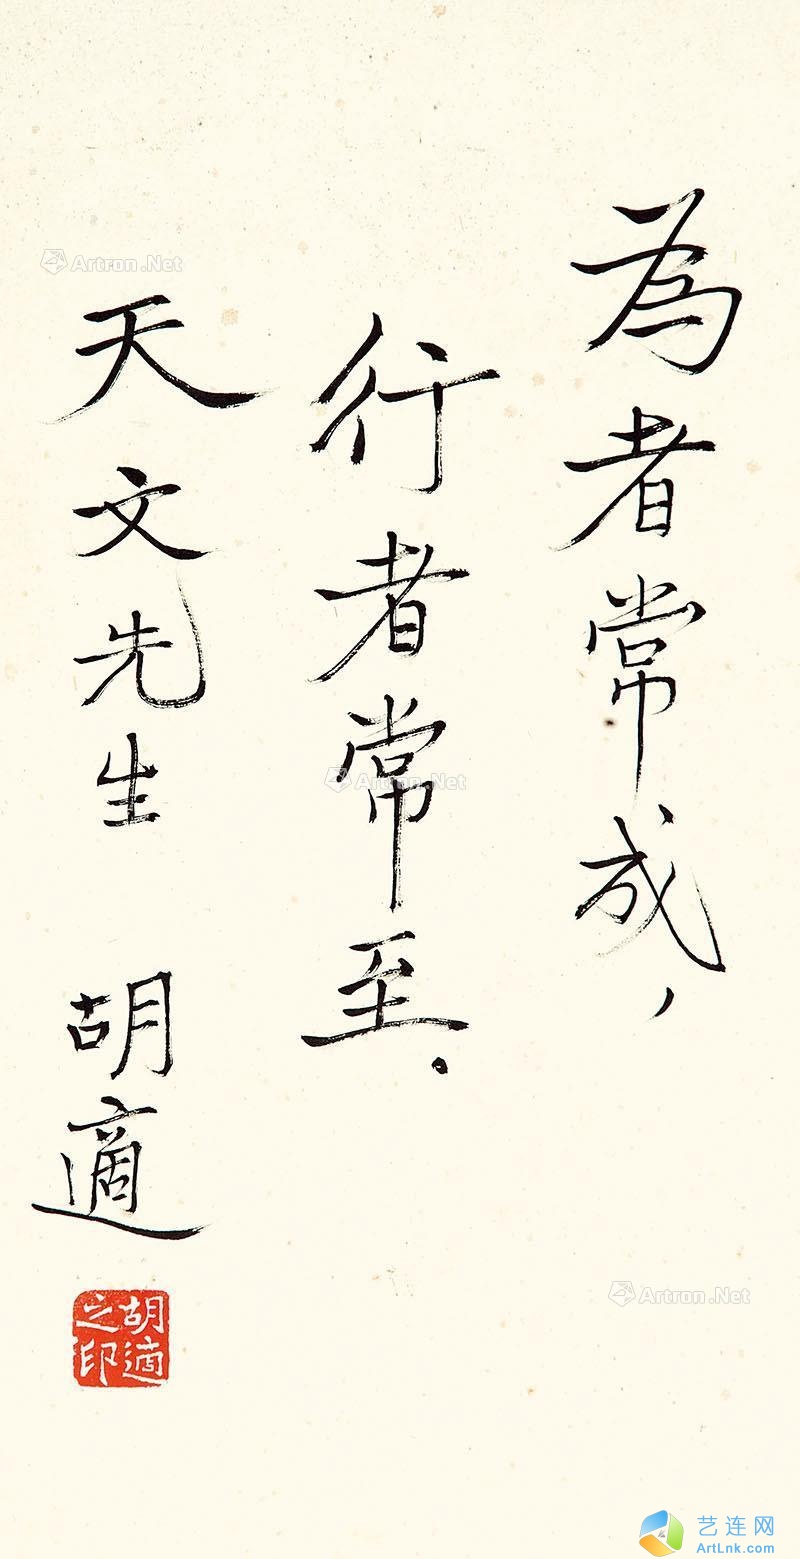 為者常成，
行者常至。
天文先生 胡適
胡適之印
Artron.Net
Artron.Net
Artron.Net
艺连网
ArtLnk.com